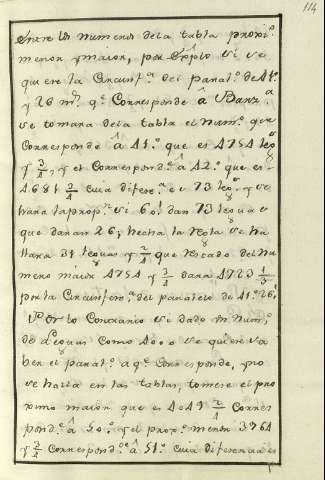 114
Entre los numeros dela tabla proxi.º
menor y maior, por Explo si se
quiere la Circunf.ª del paral.º de 41º
y 26 m.s q.e Corresponde â Barz.ª
se tomara dela tabla el Num.º que
Corresponde â 41.º que es 4754 leg.s
y 3/4, y el Correspond.e â 42.º que es
4681 3/4 cuia difer.ª es 73 leg.s y se
hara la prop.n si 60! dan 73 leguas
que daran 26, hecha la regla se ha
llara 31 leguas y 2/4 que restado del Nu
mero maior 4754 y 3/4 dara 4723 1/3
por la Circunferen.ª del paralelo de 41.º 26!
Por lo Contrario si dado un Num.º
de Leguas como 4000 se quiere sa
ber el paral.º a q.e Corresponde, y no
se halla en las tablas, tomese el pro
ximo maior que es 4049 2/4 Corres
pond.e â 50.º y el prox.º menor 3964
y 3/4 Correspond.e â 51.º cuia diferencia es